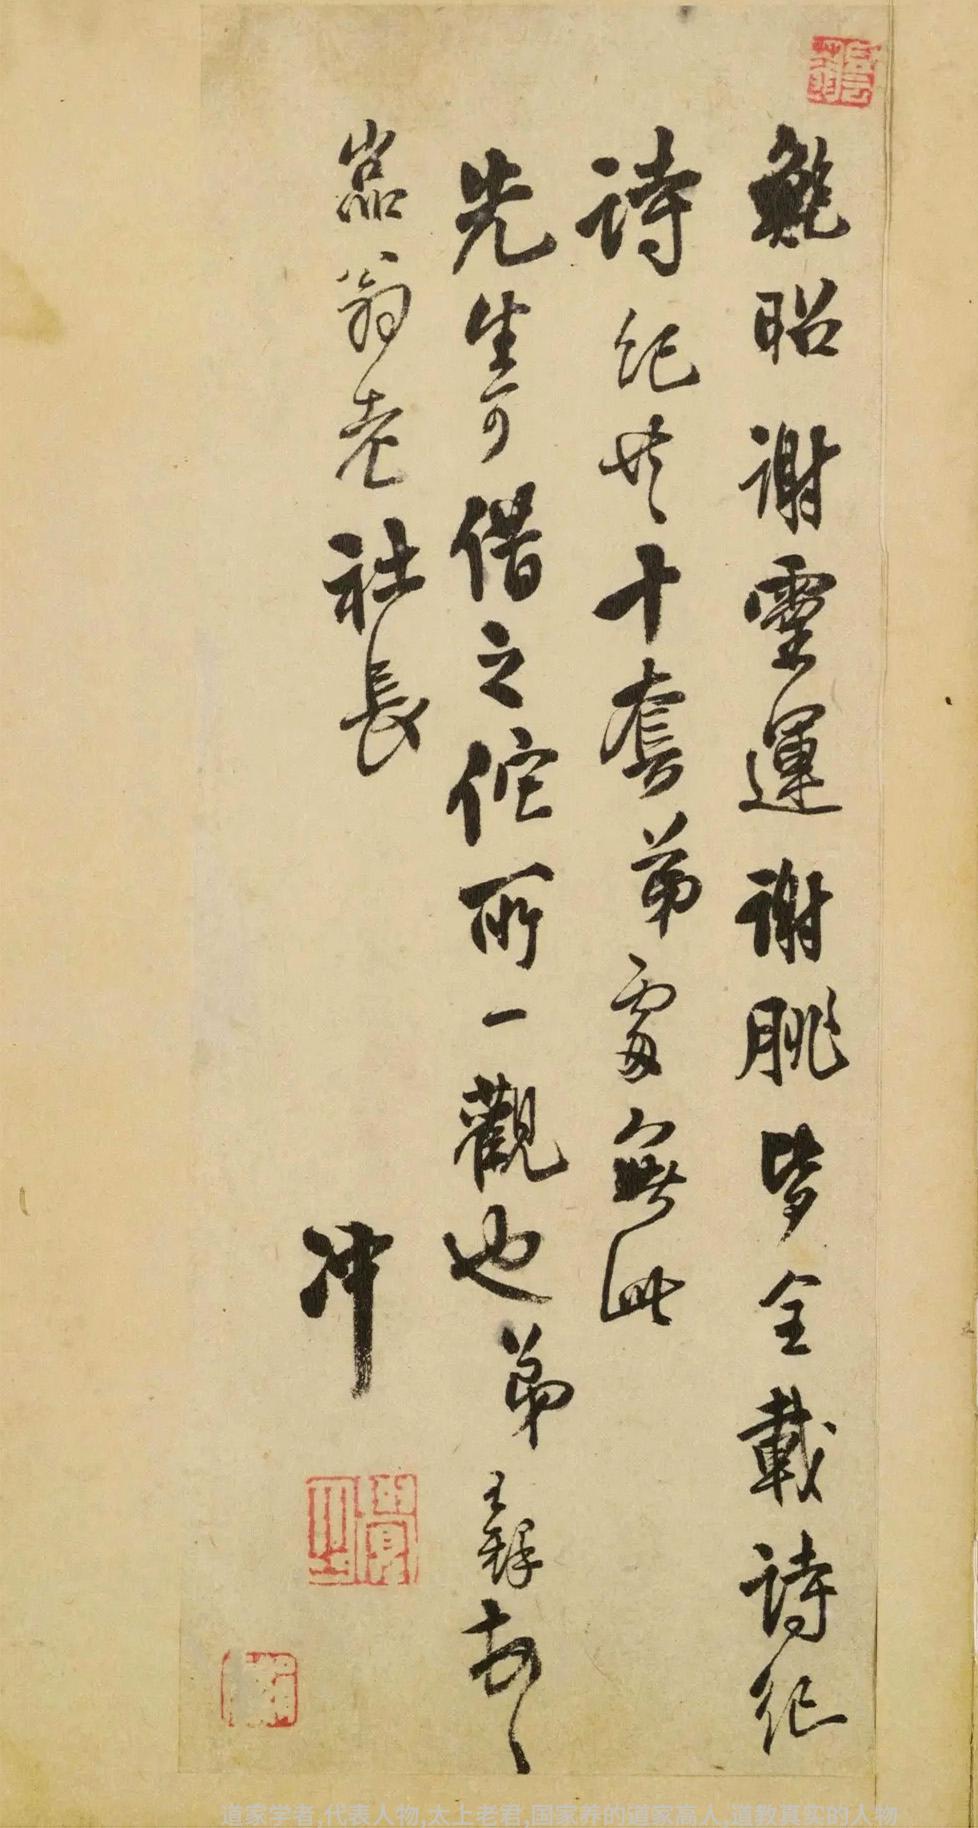 鮑昭謝靈運謝朓皆全載詩紀
詩紀共十套弟處無此
先生可借之佗所一觀也弟王鐸
嵓翁老社長
冲
道家学者,代表人物,太上老君,国家养的道家高人,道教真实的人物